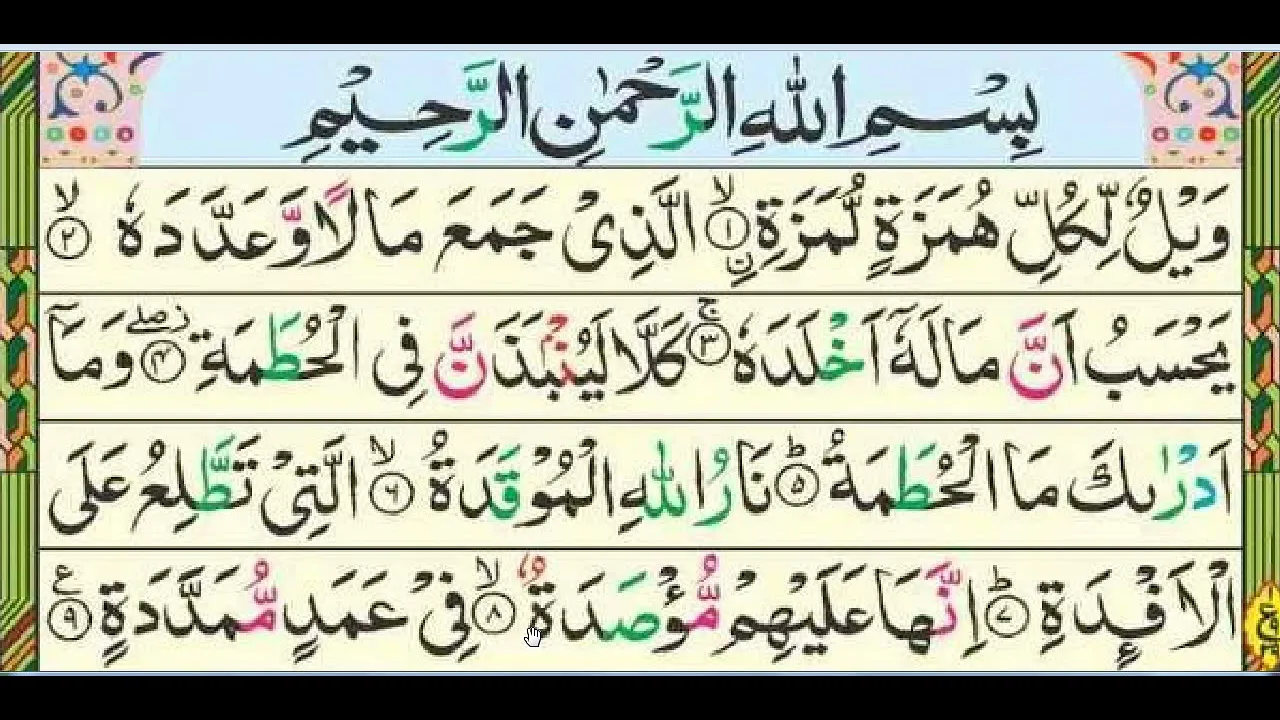 بِسْمِ اللّٰهِ الرَّحْمٰنِ الرَّحِيْمِ
وَيْلٌ لِّكُلِّ هُمَزَةٍ لُّمَزَةِ ۙ﴿۱﴾ ۨ الَّذِىْ جَمَعَ مَالًا وَّعَدَّدَهٗ ۙ﴿۲﴾
يَحْسَبُ اَنَّ مَالَهٗۤ اَخْلَدَهٗ ۚ﴿۳﴾ كَلَّا لَيُنْۢبَذَنَّ فِى الْحُطَمَةِ ۖ٘﴿۴﴾ وَمَاۤ
اَدْرٰىكَ مَا الْحُطَمَةُ ؕ﴿۵﴾ نَارُ اللّٰهِ الْمُوْقَدَةُ ۙ﴿۶﴾ الَّتِىْ تَطَّلِعُ عَلَى
الْاَفْـِٕدَةِ ؕ﴿۷﴾ اِنَّهَا عَلَيْهِمْ مُّؤْصَدَةٌ ۙ﴿۸﴾ فِىْ عَمَدٍ مُّمَدَّدَةٍ ﴿۹﴾ ع